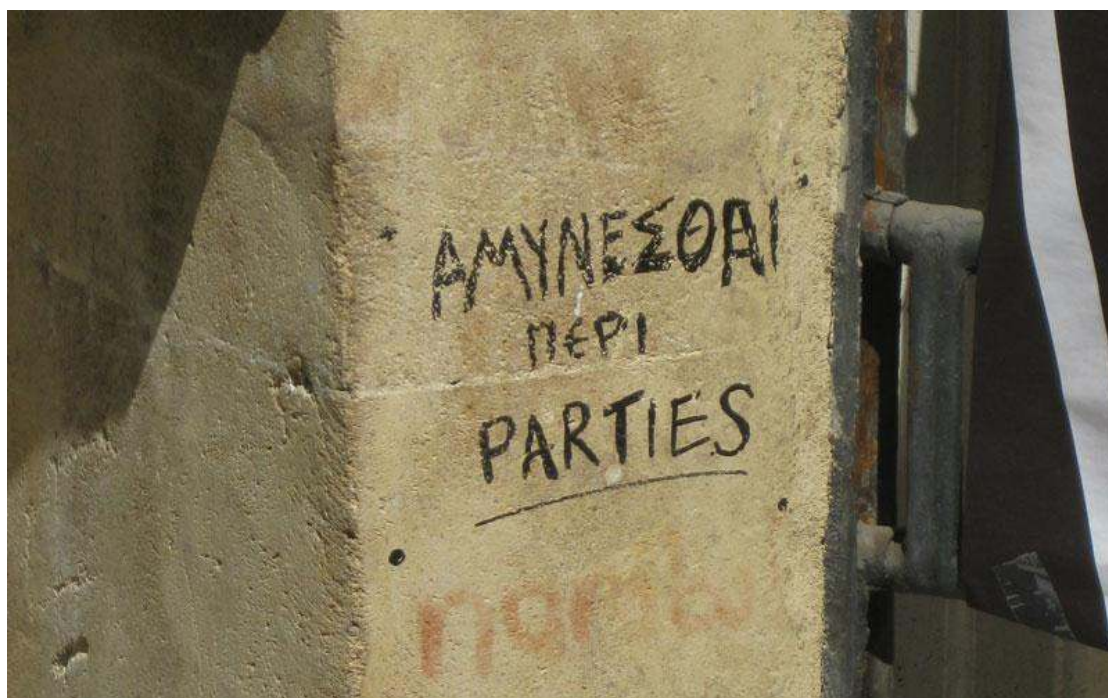 ΑΜΥΝΕΣΘΑΙ
ΠΕΡΙ
PARTIES